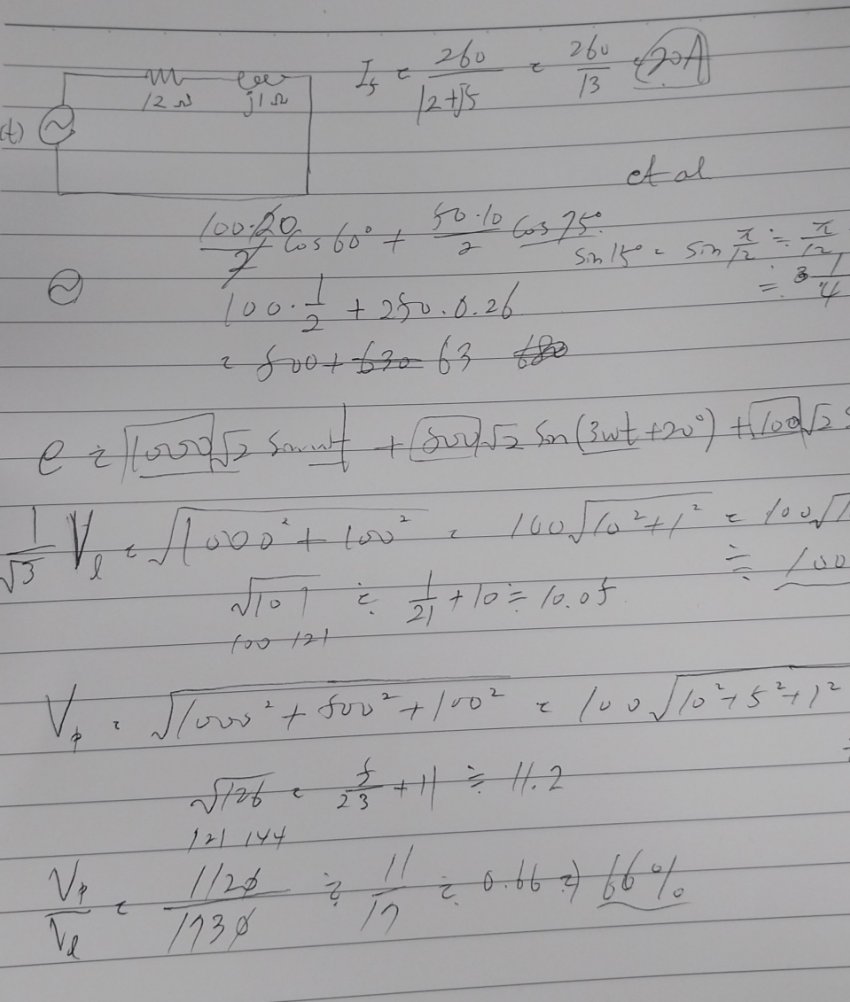 12Ω j1Ω I₅ = 260 / |2+j5 = 260 / 13 = 20A
et al
100·20 / 2 cos60° + 50·10 / 2 cos75°
sin15° = sin π/12 ≒ π/12
100·1/2 + 250·0.26 ≒ 1/4
= 500 + 630 63 680
e = 1000√2 sinwt + 500√2 sin(3wt+20°) + 100√2
1/√3 V_l = √1000²+100² = 100√10²+1² = 100√1
√101 ≒ 1/21 + 10 ≒ 10.05 ≒ 100
100 121
V_p = √1000²+500²+100² = 100√10²+5²+1²
√126 = 5/23 + 11 ≒ 11.2
121 144
V_p/V_l = 1120/1730 ≒ 11/17 ≒ 0.66 ⇒ 66%